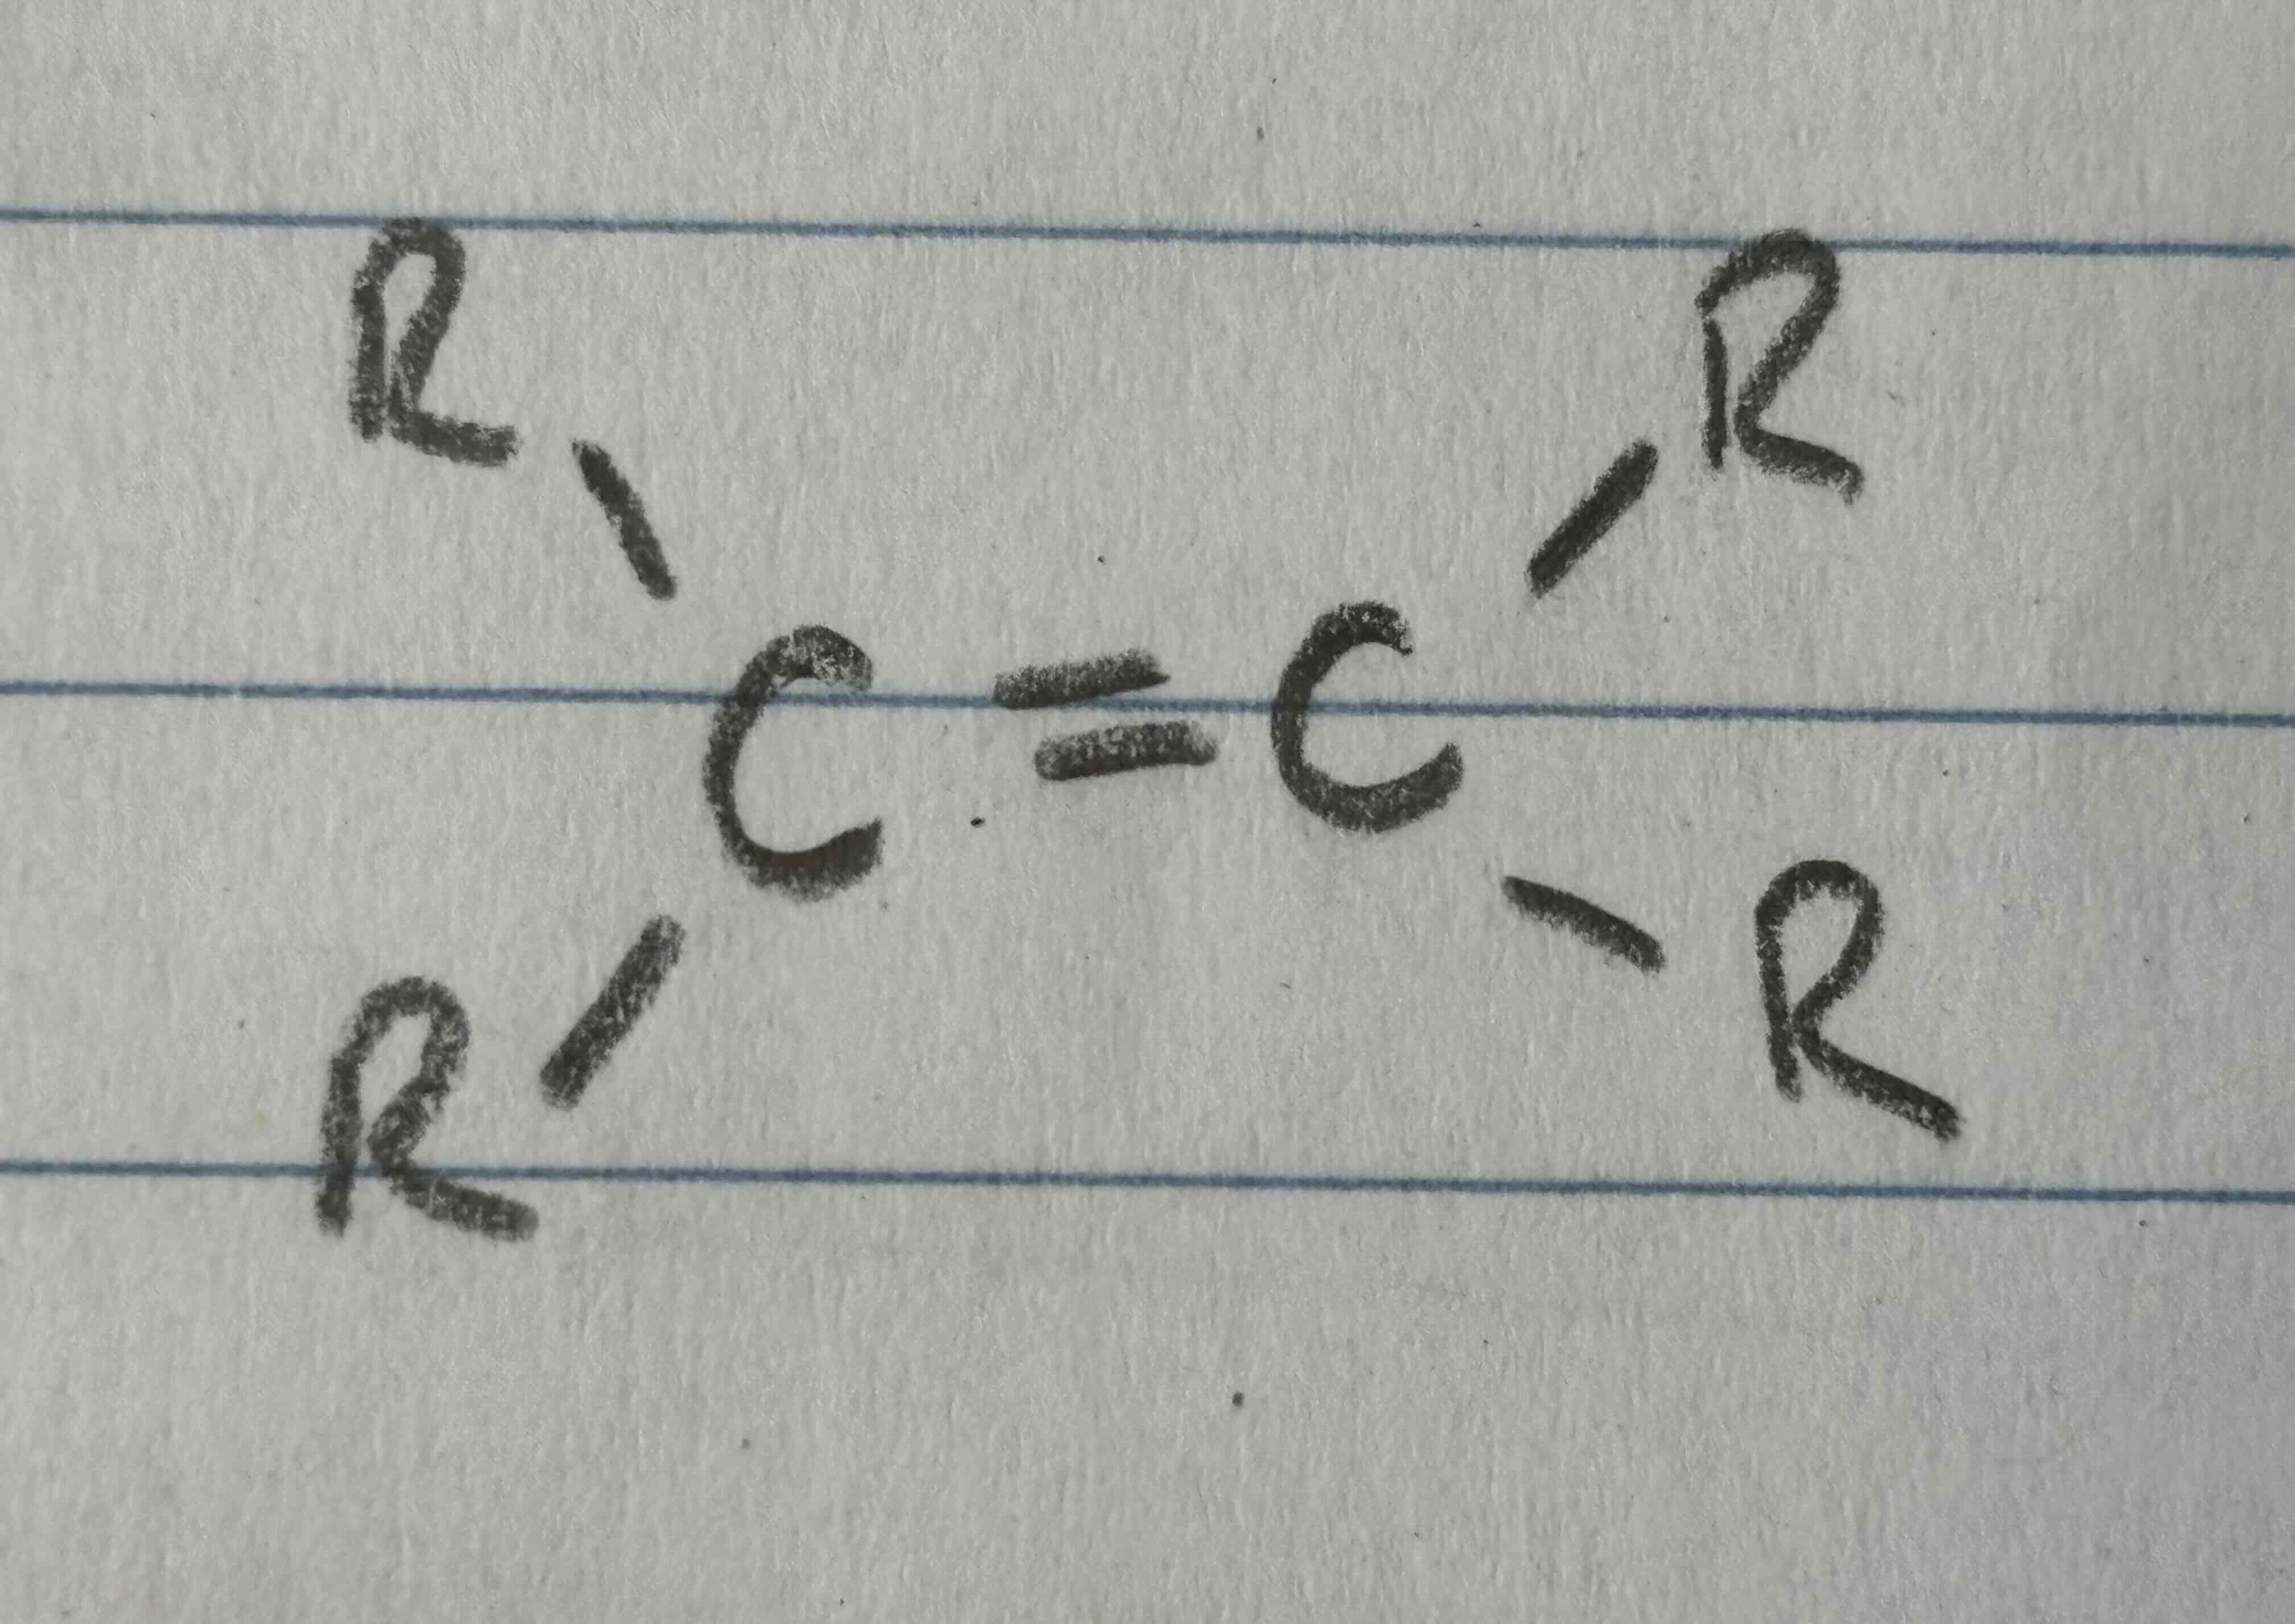 R R
C = C
R R